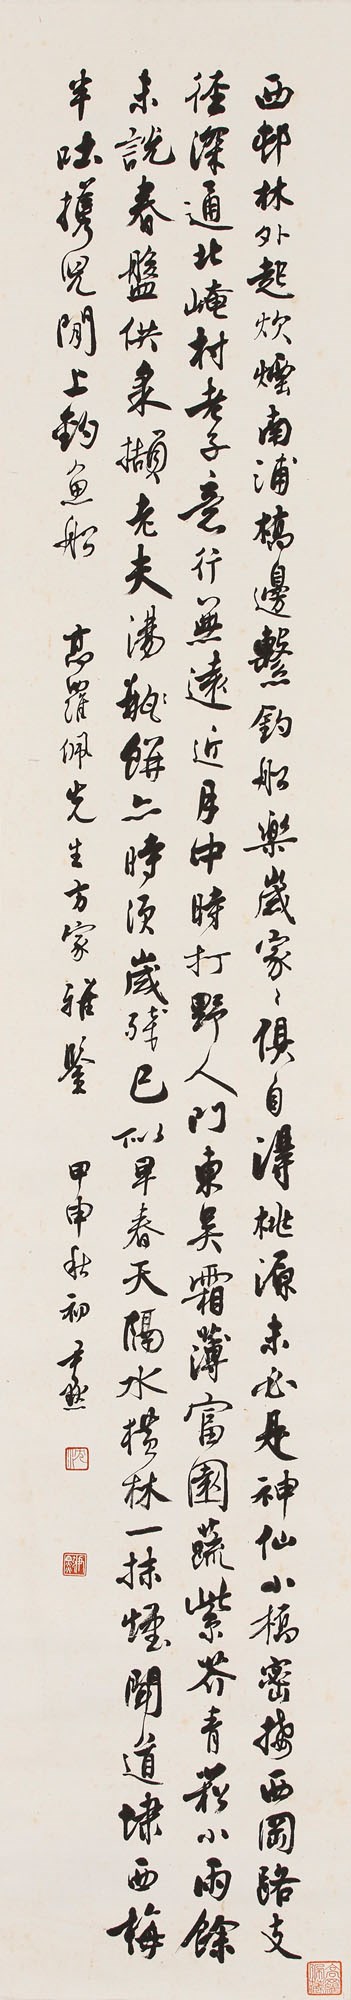 西邨林外起炊煙南浦橋邊繫釣船樂歲家〻俱自得桃源未必是神仙小橋密接西岡路支
徑深通北崦村老子意行無遠近月中時打野人門東吳霜薄富園蔬紫芥青菘小雨餘
未說春盤供采擷老夫湯餅亦時須歲殘已似早春天隔水橫林一抹煙聞道埭西梅
半吐攜兒閒上釣魚船 高羅佩先生方家雅鑒 甲申秋初 尹默
沈